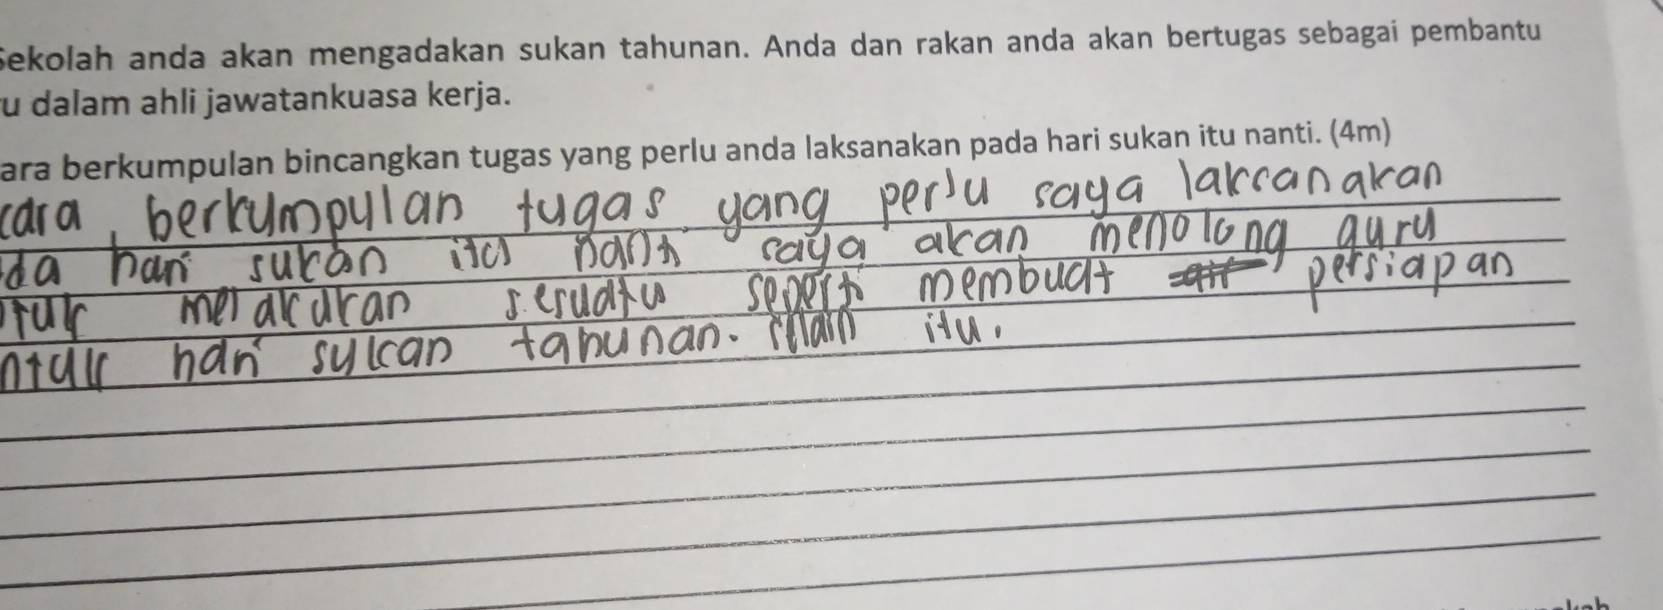 Sekolah anda akan mengadakan sukan tahunan. Anda dan rakan anda akan bertugas sebagai pembantu
u dalam ahli jawatankuasa kerja.
ara berkumpulan bincangkan tugas yang perlu anda laksanakan pada hari sukan itu nanti. (4m)
cara berkumpulan tugas yang perlu saya laksanakan
da hari sukan itu nanti saya akan menolong guru
ntuk melakukan sesuatu seperti membuat persiapan
ntuk hari sukan tahunan. itu.